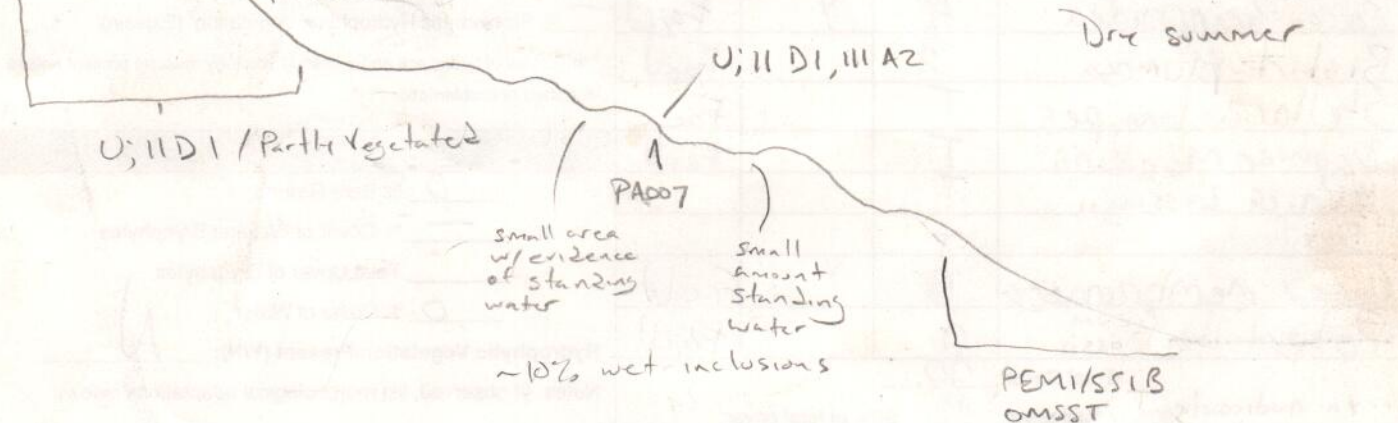 Dry summer
U; II D1, III A2
U; II D1 / Partly Vegetated
PA007
small area
w/ evidence
of standing
water
small
amount
standing
water
~10% wet inclusions
PEM1/SS1B
OMSST